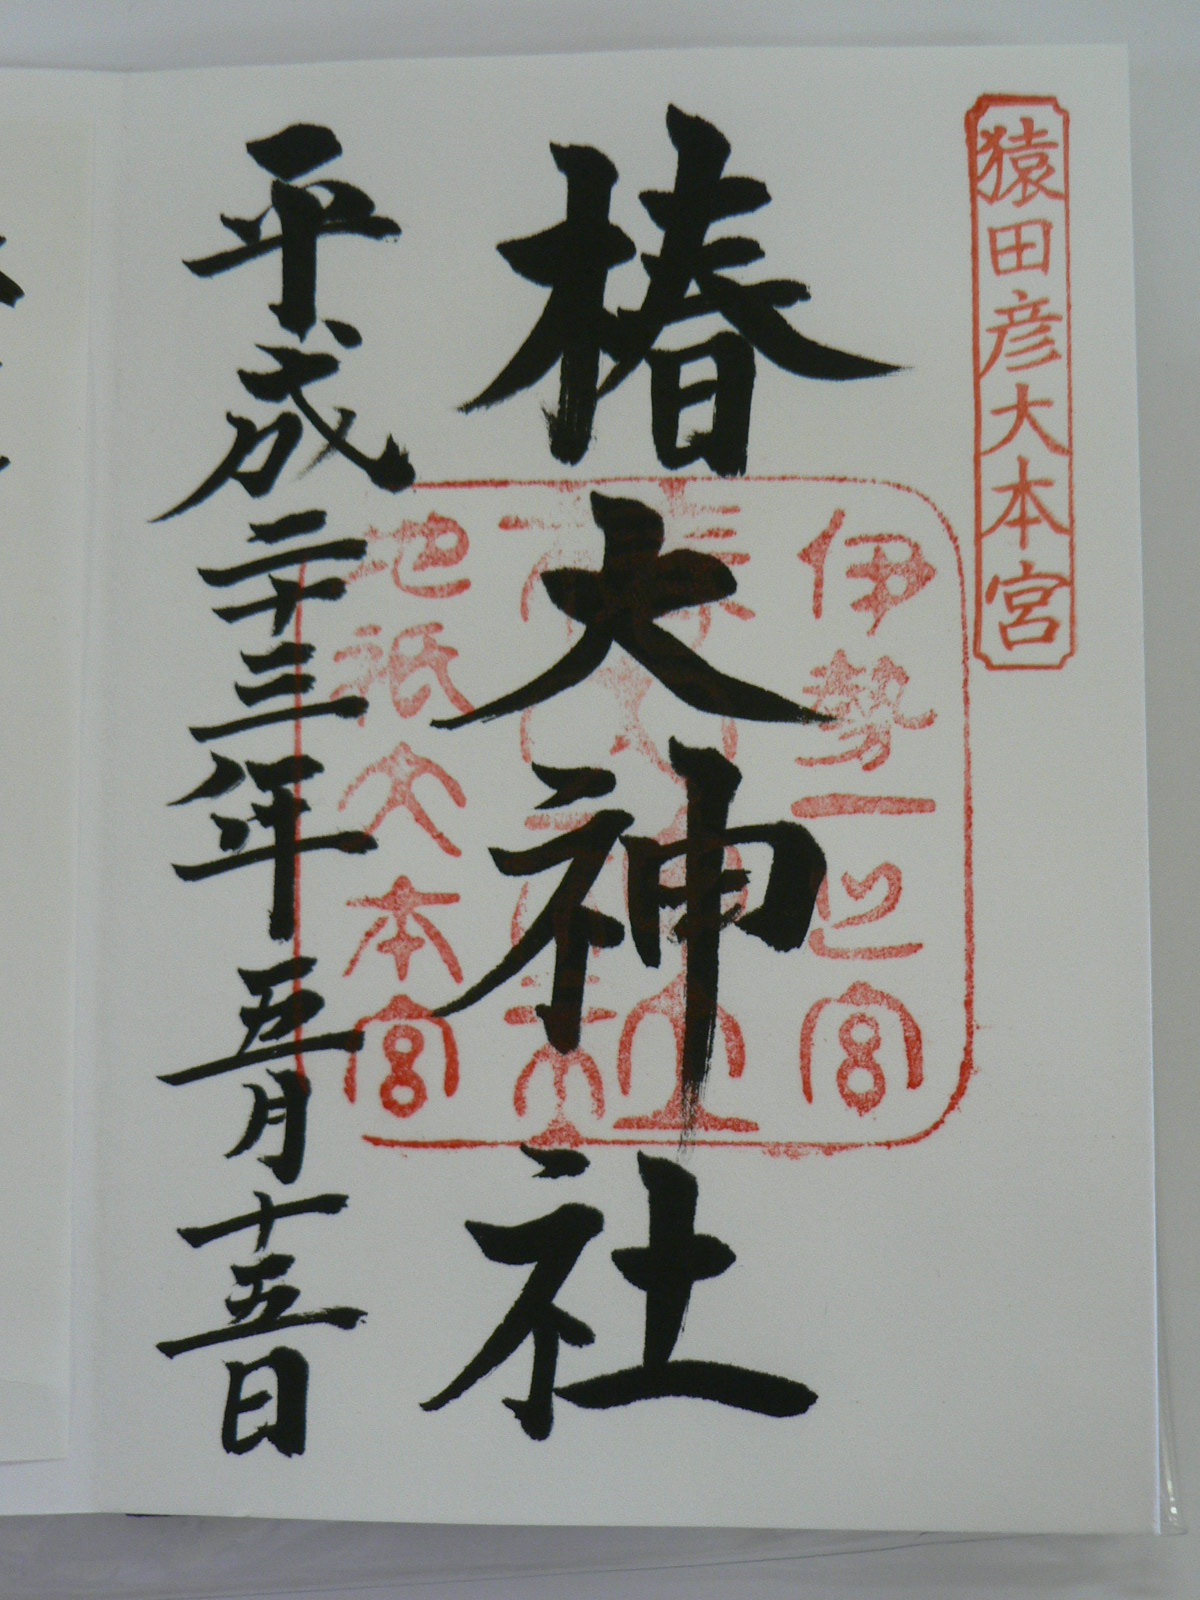 猿田彦大本宮
伊勢一之宮
椿大神社
地祇大本宮
平成二十三年五月十五日